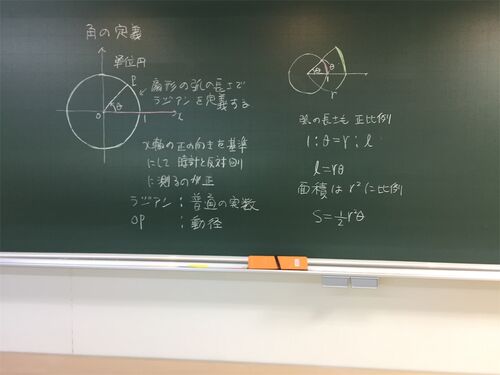 角の定義
単位円
P
θ
O
1
x
扇形の弧の長さで
ラジアンを定義する
x軸の正の向きを基準
にして時計と反対回り
に測るのが正
ラジアン:普通の実数
OP:動径
θ
θ
1
r
弧の長さも正比例
1:θ=r:l
l=rθ
面積はr²に比例
S=½r²θ